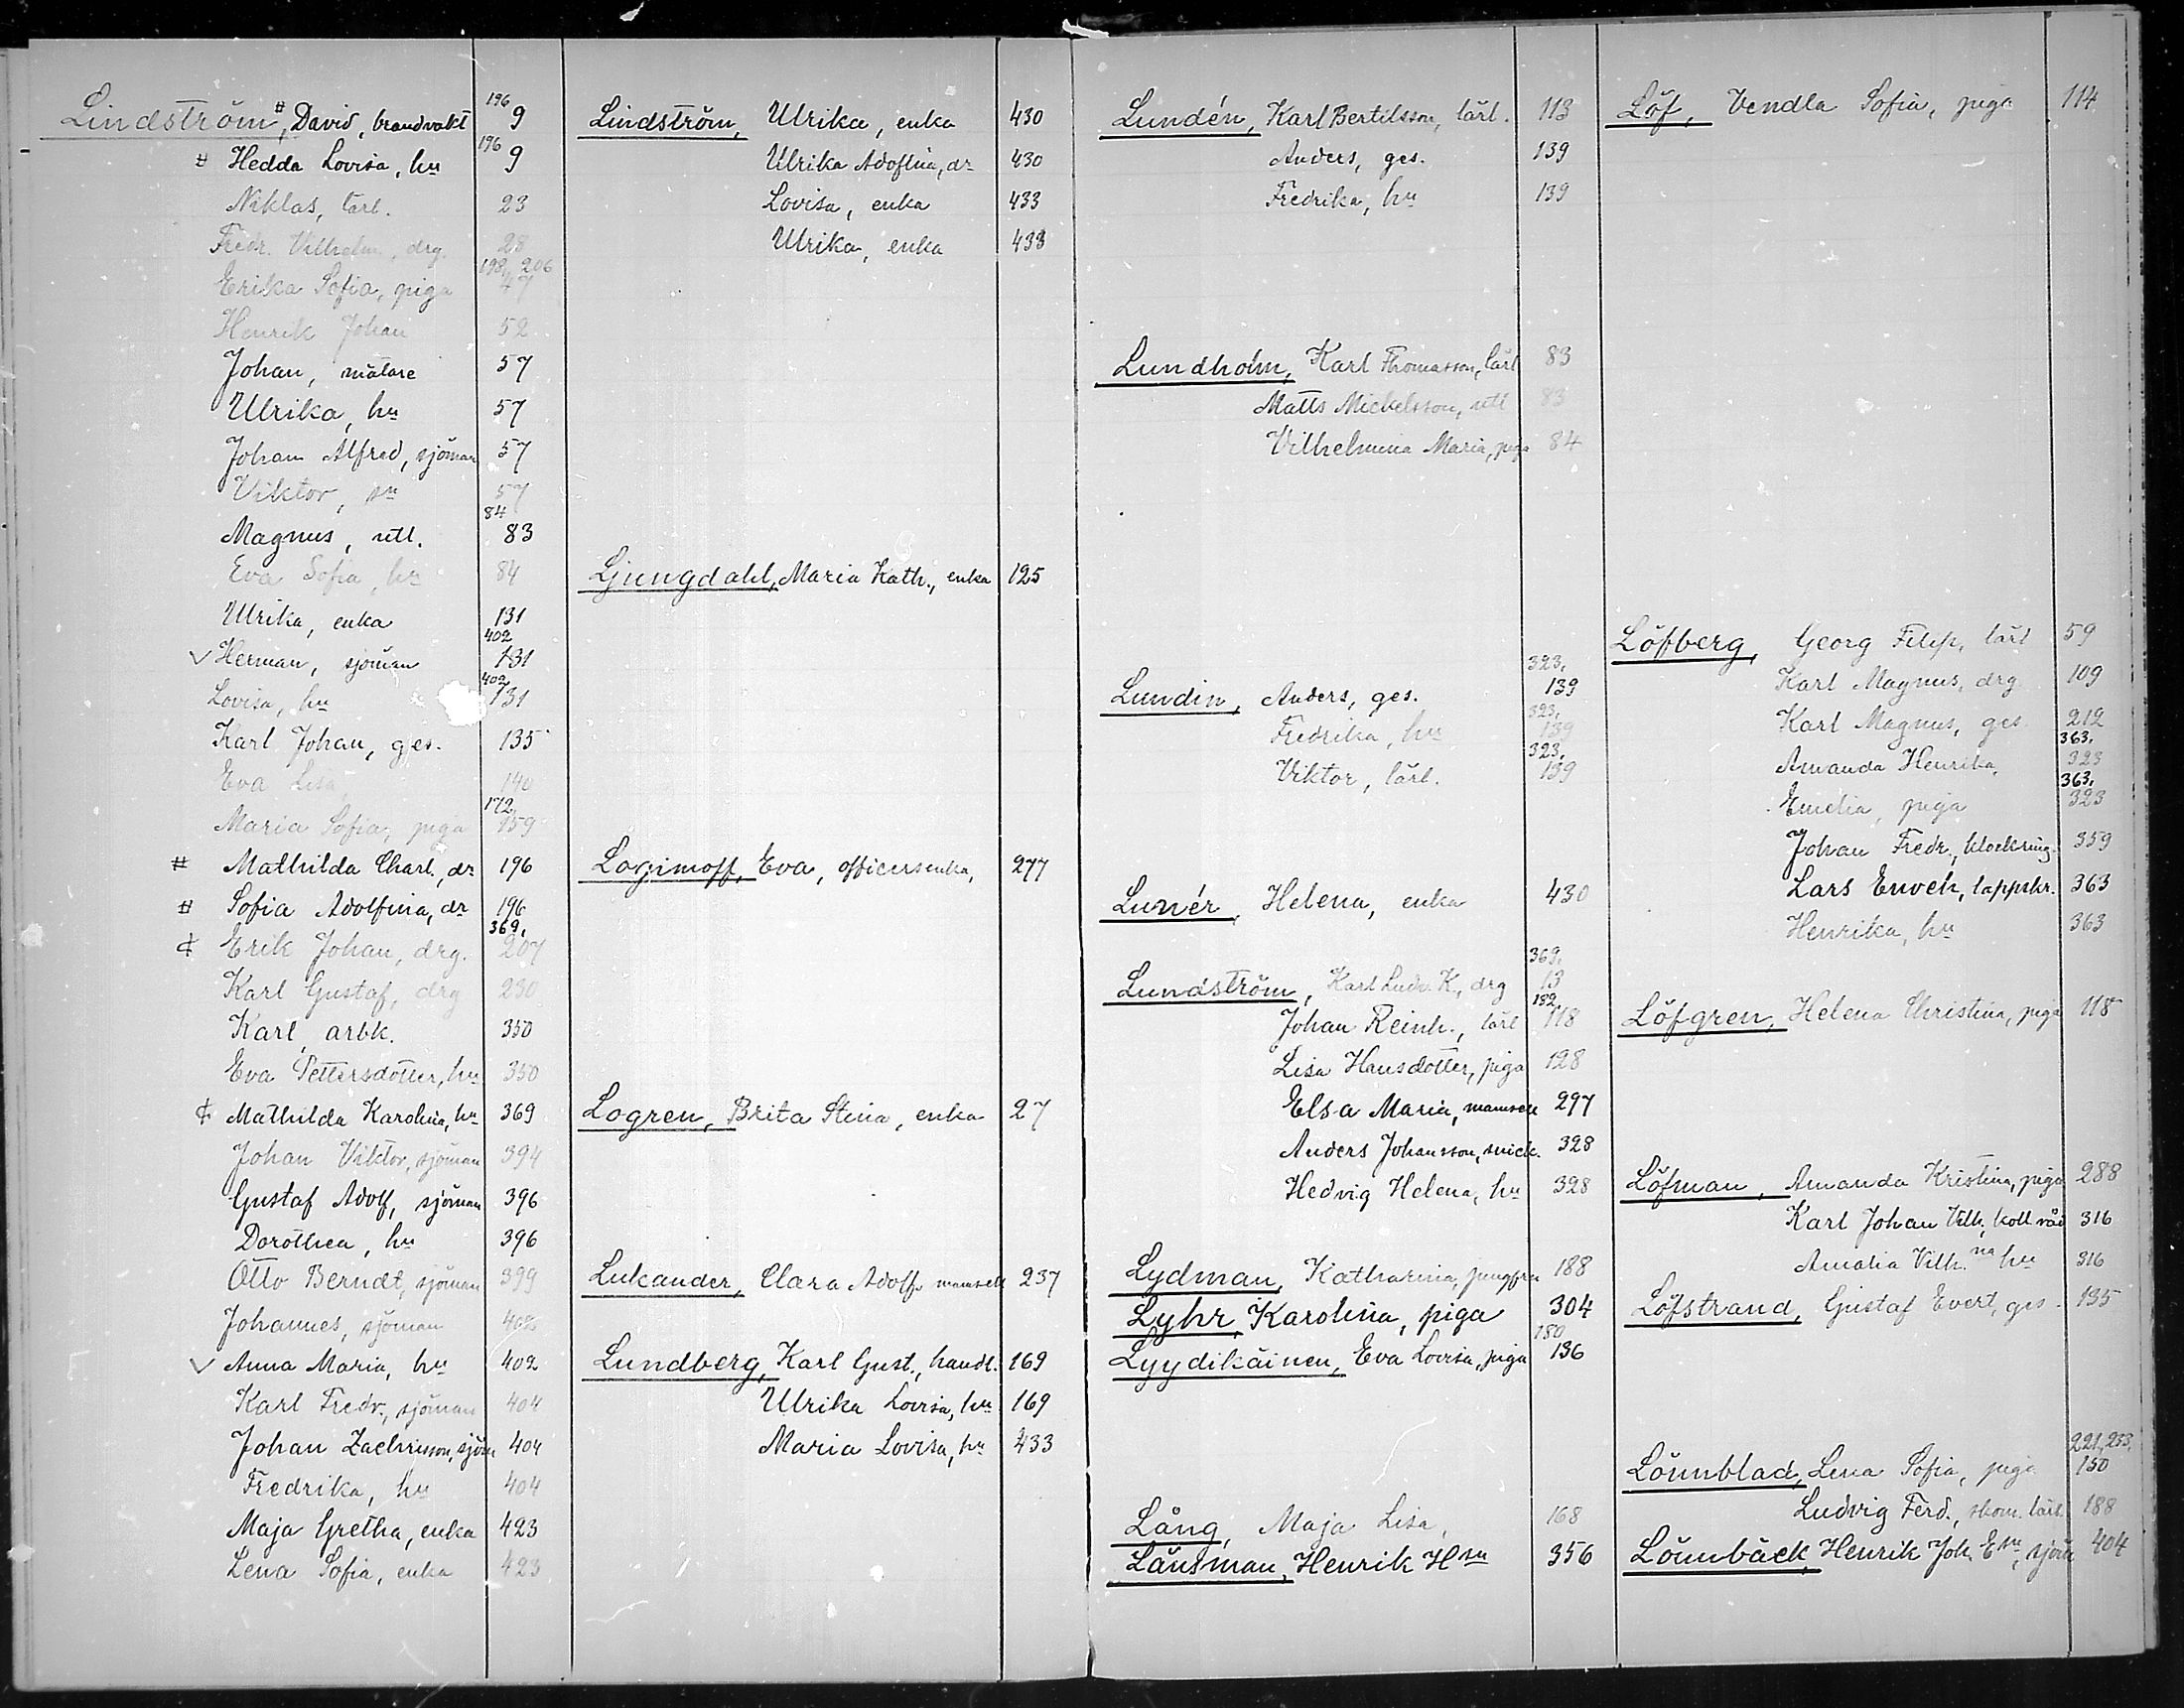 Lindström, # David, brandvakt 196 9
# Hedda Lovisa, hu 196 9
Niklas, lärl. 23
Fredr. Vilhelm, drg. 28
Erika Sofia, piga 198, 206 47
Henrik Johan 52
Johan, målare 57
Ulrika, hu 57
Johan Alfred, sjöman 57
Viktor, sn 57
Magnus, utl. 84 83
Eva Sofia, hu 84
Ulrika, enka 131
✓ Herman, sjöman 402 131
Lovisa, hu 402 131
Karl Johan, ges. 135
Eva Lisa, 140
Maria Sofia, piga 172, 159
# Mathilda Charl., dr 196
# Sofia Adolfina, dr 196
¢ Erik Johan, drg. 369, 207
Karl Gustaf, drg 230
Karl, arbk. 350
Eva Pettersdotter, hu 350
¢ Mathilda Karolina, hu 369
Johan Viktor, sjöman 394
Gustaf Adolf, sjöman 396
Dorothea, hu 396
Otto Berndt, sjöman 399
Johannes, sjöman 402
✓ Anna Maria, hu 402
Karl Fredr., sjöman 404
Johan Zachrisson, sjöm 404
Fredrika, hu 404
Maja Gretha, enka 423
Lena Sofia, enka 423
Lindström, Ulrika, enka 430
Ulrika Adoflina, dr 430
Lovisa, enka 433
Ulrika, enka 433
Ljungdahl, Maria Kath., enka 125
Logimoff, Eva, officersenka, 277
Logren, Brita Stina, enka 27
Lukander, Clara Adolf. mamsell 237
Lundberg, Karl Gust., handl. 169
Ulrika Lovisa, hu 169
Maria Lovisa, hu 433
Lundén, Karl Bertilsson, lärl. 113
Anders, ges. 139
Fredrika, hu 139
Lundholm, Karl Thomasson, lärl 83
Matts Mickelsson, utl 83
Vilhelmina Maria, piga 84
Lundin, Anders, ges. 323, 139
Fredrika, hu 323, 139
Viktor, lärl. 323, 139
Lunér, Helena, enka 430
Lundström, Karl Ludv. K., drg 369, 13
Johan Reinh., lärl 132, 118
Lisa Hansdotter, piga 128
Elsa Maria, mamsell 297
Anders Johansson, snick. 328
Hedvig Helena, hu 328
Lydman, Katharina, jungfru 188
Lyhr, Karolina, piga 304
Lyydikäinen, Eva Lovisa, piga 180 136
Lång, Maja Lisa, 168
Länsman, Henrik Hsn 356
Löf, Vendla Sofia, piga 114
Löfberg, Georg Filip, lärl 59
Karl Magnus, drg 109
Karl Magnus, ges 212
Amanda Henrika, 363, 323
Emelia, piga 363, 323
Johan Fredr., klockring. 359
Lars Envek, lappskr. 363
Henrika, hu 363
Löfgren, Helena Christina, piga 118
Löfman, Amanda Kristina, piga 288
Karl Johan Vilh., koll råd 316
Amalia Vilh.na hu 316
Löfstrand, Gustaf Evert, ges. 135
Lönnblad, Lena Sofia, piga 221, 233, 150
Ludvig Ferd., skom. lärl. 188
Lönnbäck, Henrik Joh. Esn, sjöm 404